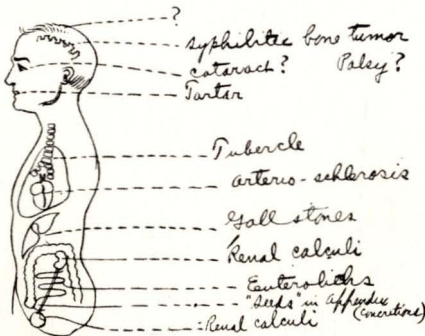 ?
syphilitic bone tumor
cataract? Palsy?
Tartar
Tubercle
arterio-schlerosis
Gall stones
Renal calculi
Enteroliths
"Seeds" in appendix
(concretions)
Renal calculi